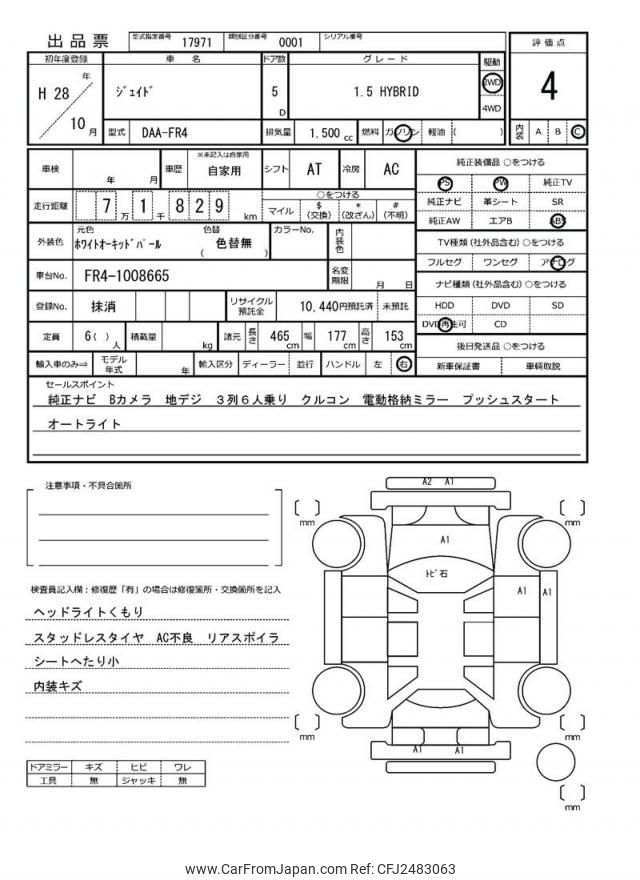 出品票
型式指定番号 17971 類別区分番号 0001 シリアル番号
初年度登録 車名 ドア数 グレード 駆動 評価点
H 28 年 10 月 ジェイド 5 D 1.5 HYBRID 2WD 4WD 4
型式 DAA-FR4 排気量 1.500 cc 燃料 ガソリン 軽油 ( ) 内装 A B C
車検 年 月 車歴 ※未記入は自家用 自家用 シフト AT 冷房 AC
走行距離 7 万 1 千 8 2 9 km ○をつける マイル $ (交換) * (改ざん) # (不明)
外装色 元色 ホワイトオーキッドパール 色替 ( 色替無 ) カラーNo. 内装色
車台No. FR4-1008665 名変期限 月 日
登録No. 抹消 リサイクル預託金 10,440円預託済 未預託
定員 6( )人 積載量 kg 諸元 長さ 465 cm 幅 177 cm 高さ 153 cm
輸入車のみ⇒ モデル年式 年 輸入区分 ディーラー 並行 ハンドル 左 右
純正装備品 ○をつける
PS PW 純正TV
純正ナビ 革シート SR
純正AW エアB ABS
TV種類 (社外品含む) ○をつける
フルセグ ワンセグ アナログ
ナビ種類 (社外品含む) ○をつける
HDD DVD SD
DVD再生可 CD
後日発送品 ○をつける
新車保証書 車輌取説
セールスポイント
純正ナビ Bカメラ 地デジ 3列6人乗り クルコン 電動格納ミラー プッシュスタート
オートライト
注意事項・不具合箇所
検査員記入欄：修復歴「有」の場合は修復箇所・交換箇所を記入
ヘッドライトくもり
スタッドレスタイヤ AC不良 リアスポイラ
シートへたり小
内装キズ
ドアミラー キズ ヒビ ワレ
工具 無 ジャッキ 無
A2 A1
[ ] mm [ ] mm
A1
トビ石
A1 A1
[ ] mm [ ] mm
A1 A1
[ ] mm
www.CarFromJapan.com Ref: CFJ2483063